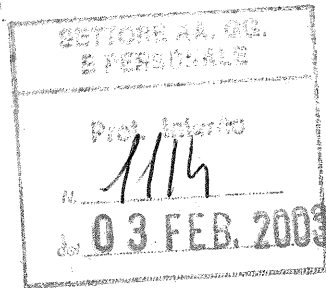 SETTORE AA. GG.
E PERSONALE
Prot. Interno
N. 1114
del 03 FEB. 2003